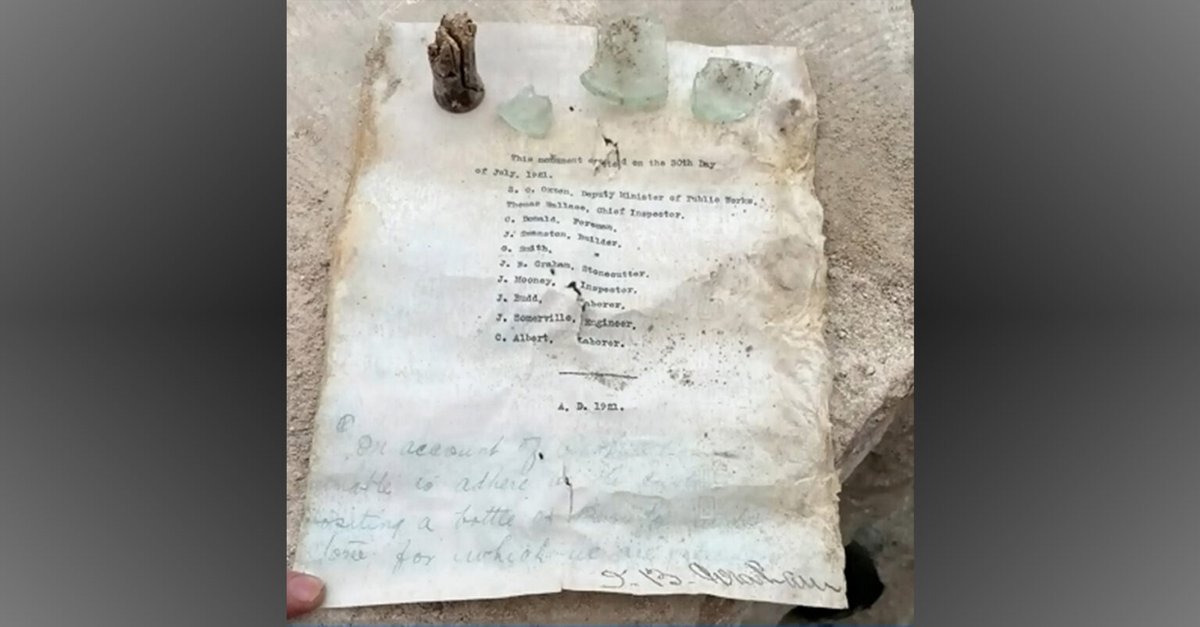 This monument erected on the 30th Day
of July, 1921.
S. C. Oxton, Deputy Minister of Public Works.
Thomas Wallace, Chief Inspector.
C. Donald, Foreman.
J. Swanston, Builder.
G. Smith, "
J. B. Graham, Stonecutter.
J. Mooney, Inspector.
J. Budd, Laborer.
J. Somerville, Engineer.
C. Albert, Laborer.
A. D. 1921.
On account of
unable to adhere to the
a bottle of
for which we are
J. B. Graham